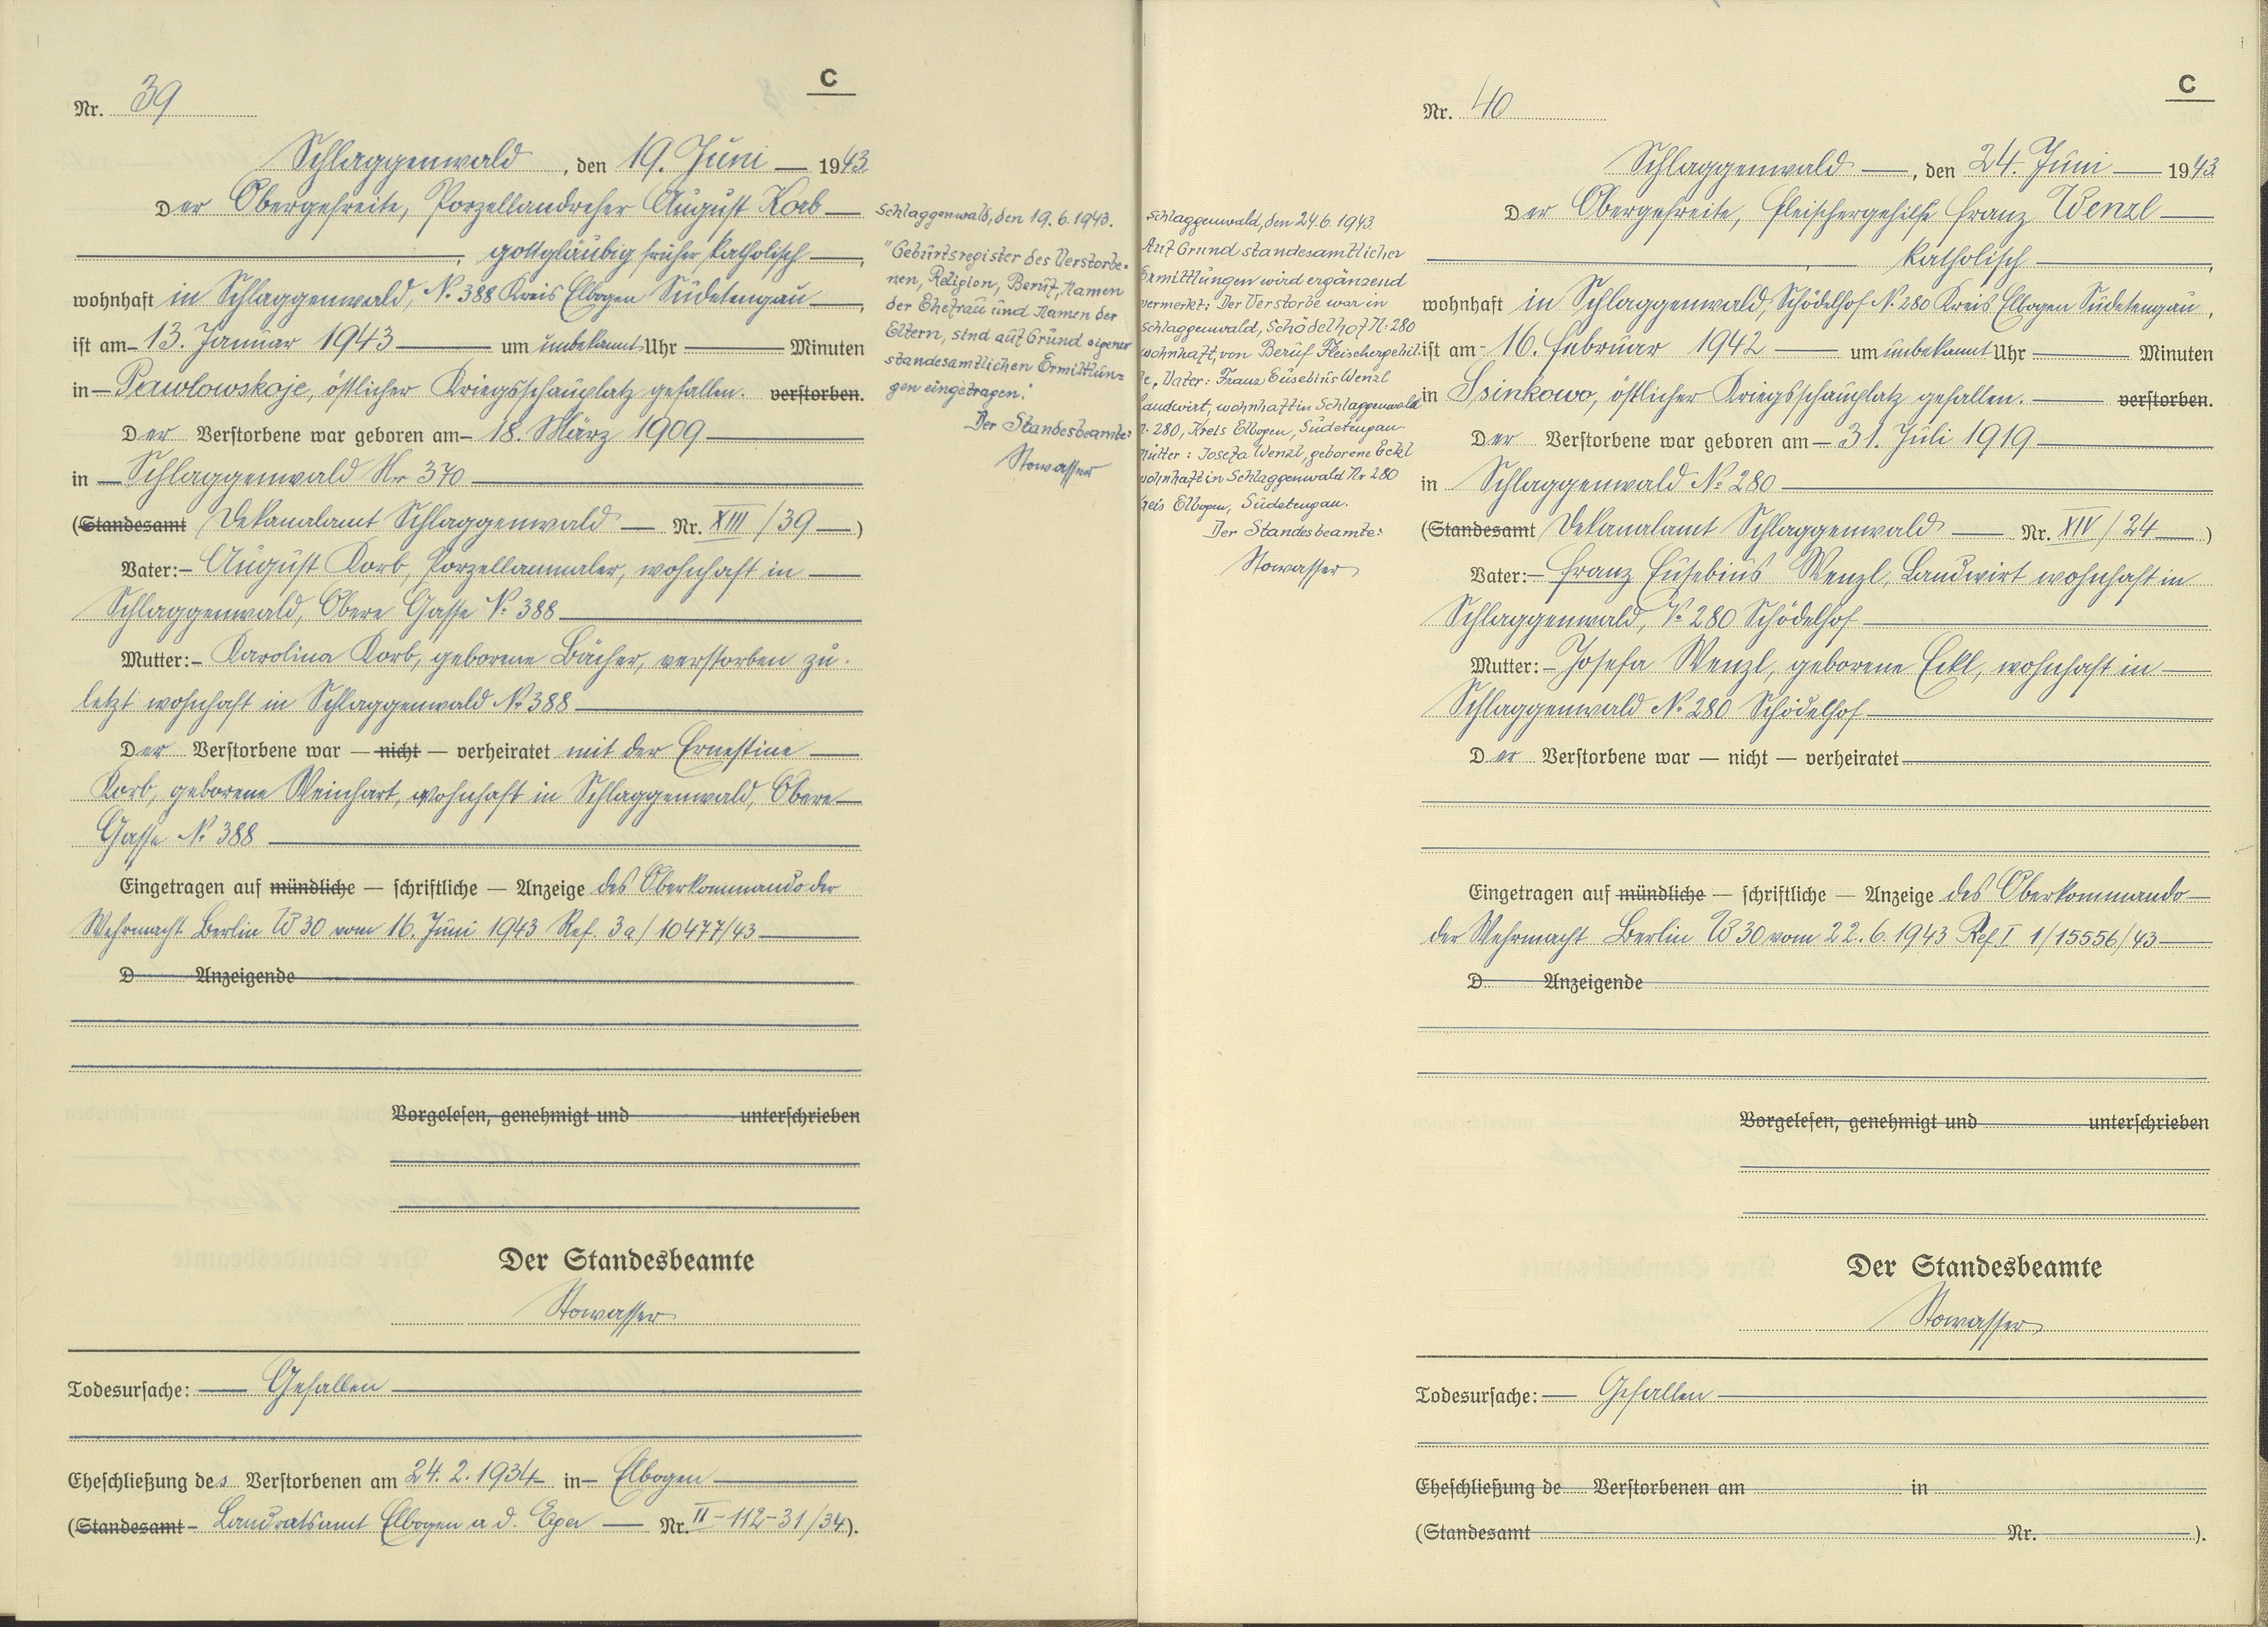 C
Nr. 39
Schlaggenwald, den 19. Juni 1943
Der Obergefreite, Porzellandreher August Korb
, gottgläubig früher katholisch,
wohnhaft in Schlaggenwald, No 388 Kreis Elbogen Sudetengau,
ist am 13. Januar 1943 um unbekannt Uhr Minuten
in Pawlowskoje, östlicher Kriegsschauplatz gefallen. verstorben.
Der Verstorbene war geboren am 18. März 1909
in Schlaggenwald Nr 370
(Standesamt Dekanalamt Schlaggenwald Nr. XIII/39)
Vater: August Korb, Porzellanmaler, wohnhaft in
Schlaggenwald, Obere Gasse No 388
Mutter: Karolina Korb, geborene Bächer, verstorben zu-
letzt wohnhaft in Schlaggenwald No 388
Der Verstorbene war — nicht — verheiratet mit der Ernestine
Korb, geborene Weinhart, wohnhaft in Schlaggenwald, Obere
Gasse No 388
Eingetragen auf mündliche — schriftliche — Anzeige des Oberkommando der
Wehrmacht Berlin W 30 vom 16. Juni 1943 Ref. 3a/10477/43
D Anzeigende
Vorgelesen, genehmigt und unterschrieben
Der Standesbeamte
Stowasser
Todesursache: Gefallen
Eheschließung des Verstorbenen am 24.2.1934 in Elbogen
(Standesamt - Landratsamt Elbogen a d. Eger Nr. II-112-31/34).
Schlaggenwald, den 19.6.1943.
"Geburtsregister des Verstorbe=
nen, Religion, Beruf, Namen
der Ehefrau und Namen der
Eltern, sind auf Grund eigener
standesamtlichen Ermittlun=
gen eingetragen."
Der Standesbeamte:
Stowasser
Schlaggenwald, den 24.6.1943.
Auf Grund standesamtlicher
Ermittlungen wird ergänzend
vermerkt: Der Verstorbe war in
Schlaggenwald, Schödelhof N: 280
wohnhaft, von Beruf Fleischergehil-
fe, Vater: Franz Eusebius Wenzl
Landwirt, wohnhaft in Schlaggenwald
N. 280, Kreis Elbogen, Sudetengau
Mutter: Josefa Wenzl, geborene Eckl
wohnhaft in Schlaggenwald Nr 280
Kreis Elbogen, Sudetengau.
Der Standesbeamte:
Stowasser
C
Nr. 40
Schlaggenwald, den 24. Juni 1943
Der Obergefreite, Fleischergehilfe Franz Wenzl
, katholisch,
wohnhaft in Schlaggenwald, Schödelhof No 280 Kreis Elbogen Sudetengau,
ist am 16. Februar 1942 um unbekannt Uhr Minuten
in Ssinkowo, östlicher Kriegsschauplatz gefallen. verstorben.
Der Verstorbene war geboren am 31. Juli 1919
in Schlaggenwald No 280
(Standesamt Dekanalamt Schlaggenwald Nr. XIV/24)
Vater: Franz Eusebius Wenzl, Landwirt wohnhaft in
Schlaggenwald, No 280 Schödelhof
Mutter: Josefa Wenzl, geborene Eckl, wohnhaft in
Schlaggenwald No 280 Schödelhof
Der Verstorbene war — nicht — verheiratet
Eingetragen auf mündliche — schriftliche — Anzeige des Oberkommando
der Wehrmacht Berlin W 30 vom 22.6.1943 Ref. I 1/15556/43
D Anzeigende
Vorgelesen, genehmigt und unterschrieben
Der Standesbeamte
Stowasser
Todesursache: Gefallen
Eheschließung de Verstorbenen am in
(Standesamt Nr. ).